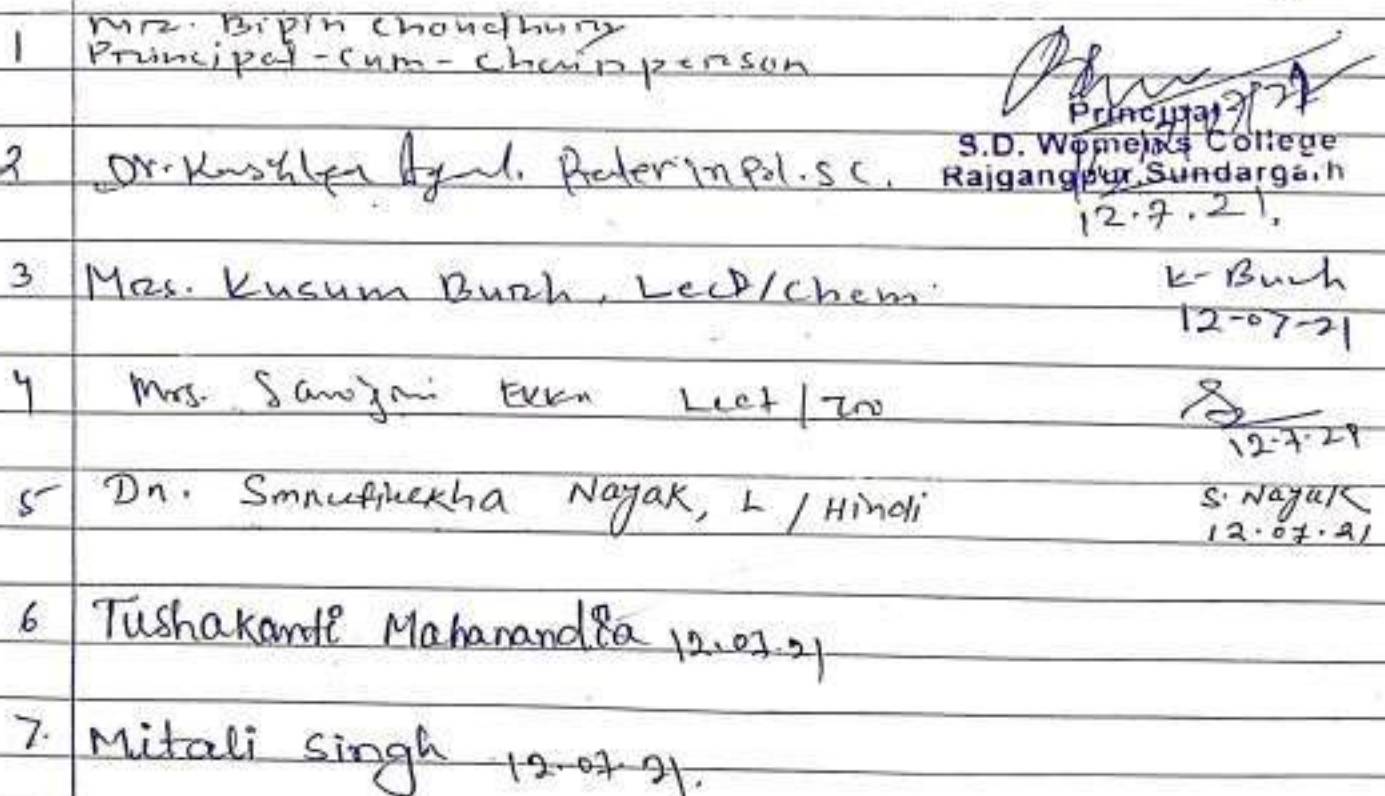 1 Mrs. Bipin Choudhury
Principal-cum-Chairperson
Principal
S.D. Women's College
Rajgangpur, Sundargah
2 Dr. Agrl. Reader in Pol. Sc.
12.7.21.
3 Mrs. Kusum Burh, Lect/Chem.
K-Burh
12-07-21
4 Mrs. Sarojni Ekka Lect/Zoo
12.7.21
5 Dr. Nayak, L/Hindi
S. Nayak
12.07.21
6 Tushakanti Mahanandia 12.07.21
7. Mitali Singh 12.07.21.